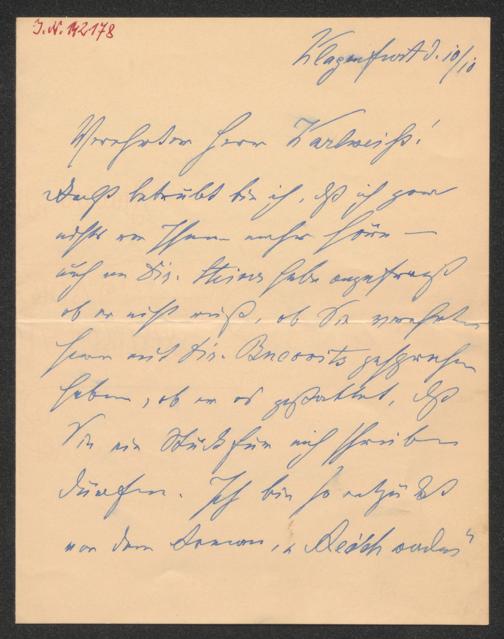 J. N. 142178
Klagenfurt d. 10/10
Verehrter Herr Karlweiß!
Recht betrübt bin ich, daß ich gar
nichts von Ihnen mehr höre –
auch an Dir. habe angefragt
ob er nicht weiß, ob Sie verehrter
Herr mit Dir. Bucovits gesprochen
haben, ob er es gestattet, daß
Sie ein Stück für mich schreiben
dürfen. Ich bin so entzückt
von dem Roman, „